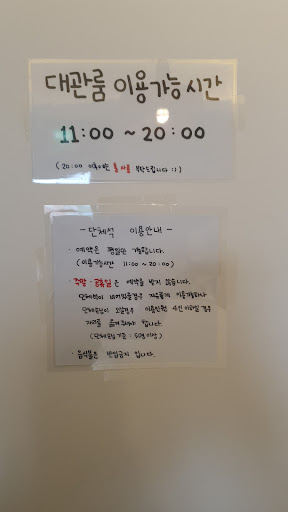 대관룸 이용가능 시간
11:00 ~ 20:00
(20:00 이후에는 홀 사용 부탁드립니다 :))
- 단체석 이용안내 -
· 예약은 평일만 가능합니다.
(이용가능시간 11:00 ~ 20:00)
· 주말·공휴일은 예약을 받지 않습니다.
단체석이 비어있을경우 자유롭게 이용가능하나
단체손님이 오실경우 이용인원 4인 이하일 경우
자리를 옮겨주셔야 합니다.
(단체손님 기준 : 5인이상)
· 음식물은 반입금지 입니다.